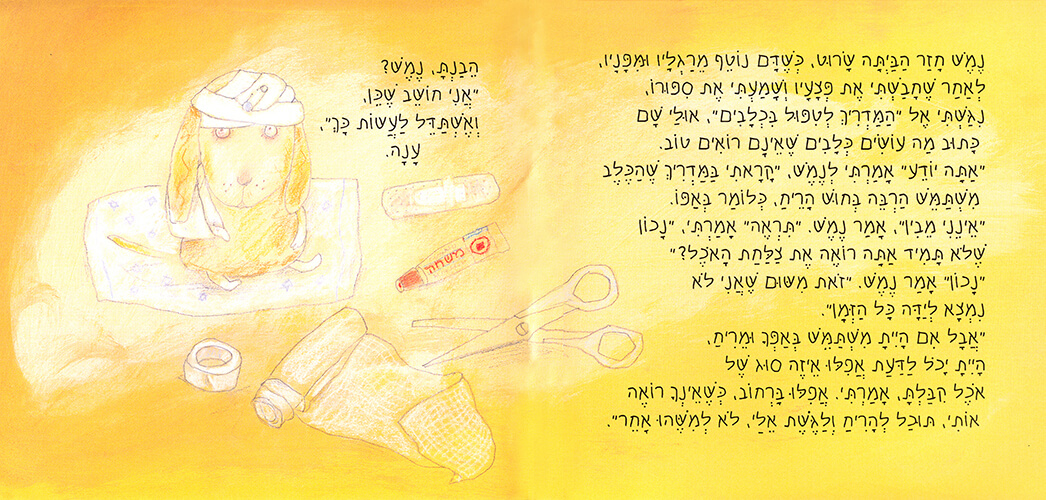 נֶמֶשׁ חָזַר הַבַּיְתָה שָׂרוּט, כְּשֶׁדָּם נוֹטֵף מֵרַגְלָיו וּמִפָּנָיו,
לְאַחַר שֶׁחָבַשְׁתִּי אֶת פְּצָעָיו וְשָׁמַעְתִּי אֶת סִפּוּרוֹ,
נִגַּשְׁתִּי אֶל "הַמַּדְרִיךְ לְטִפּוּל בִּכְלָבִים", אוּלַי שָׁם
כָּתוּב מַה עוֹשִׂים כְּלָבִים שֶׁאֵינָם רוֹאִים טוֹב.
"אַתָּה יוֹדֵעַ" אָמַרְתִּי לְנֶמֶשׁ, "קָרָאתִי בַּמַּדְרִיךְ שֶׁהַכֶּלֶב
מִשְׁתַּמֵּשׁ הַרְבֵּה בְּחוּשׁ הָרֵיחַ, כְּלוֹמַר בְּאַפּוֹ.
"אֵינֶנִּי מֵבִין", אָמַר נֶמֶשׁ. "תִּרְאֶה" אָמַרְתִּי, "נָכוֹן
שֶׁלֹּא תָּמִיד אַתָּה רוֹאֶה אֶת צַלַּחַת הָאֹכֶל?"
"נָכוֹן" אָמַר נֶמֶשׁ. "זֹאת מִשּׁוּם שֶׁאֲנִי לֹא
נִמְצָא לְיָדָהּ כָּל הַזְּמַן".
"אֲבָל אִם הָיִיתָ מִשְׁתַּמֵּשׁ בְּאַפְּךָ וּמֵרִיחַ,
הָיִיתָ יָכֹל לָדַעַת אֲפִלּוּ אֵיזֶה סוּג שֶׁל
אֹכֶל קִבַּלְתָּ, אָמַרְתִּי. אֲפִלּוּ בָּרְחוֹב, כְּשֶׁאֵינְךָ רוֹאֶה
אוֹתִי, תּוּכַל לְהָרִיחַ וְלָגֶשֶׁת אֵלַי, לֹא לְמִשֶּׁהוּ אַחֵר".
הֵבַנְתָּ, נֶמֶשׁ?
"אֲנִי חוֹשֵׁב שֶׁכֵּן,
וְאֶשְׁתַּדֵּל לַעֲשׂוֹת כָּךְ",
עָנָה.
משחה